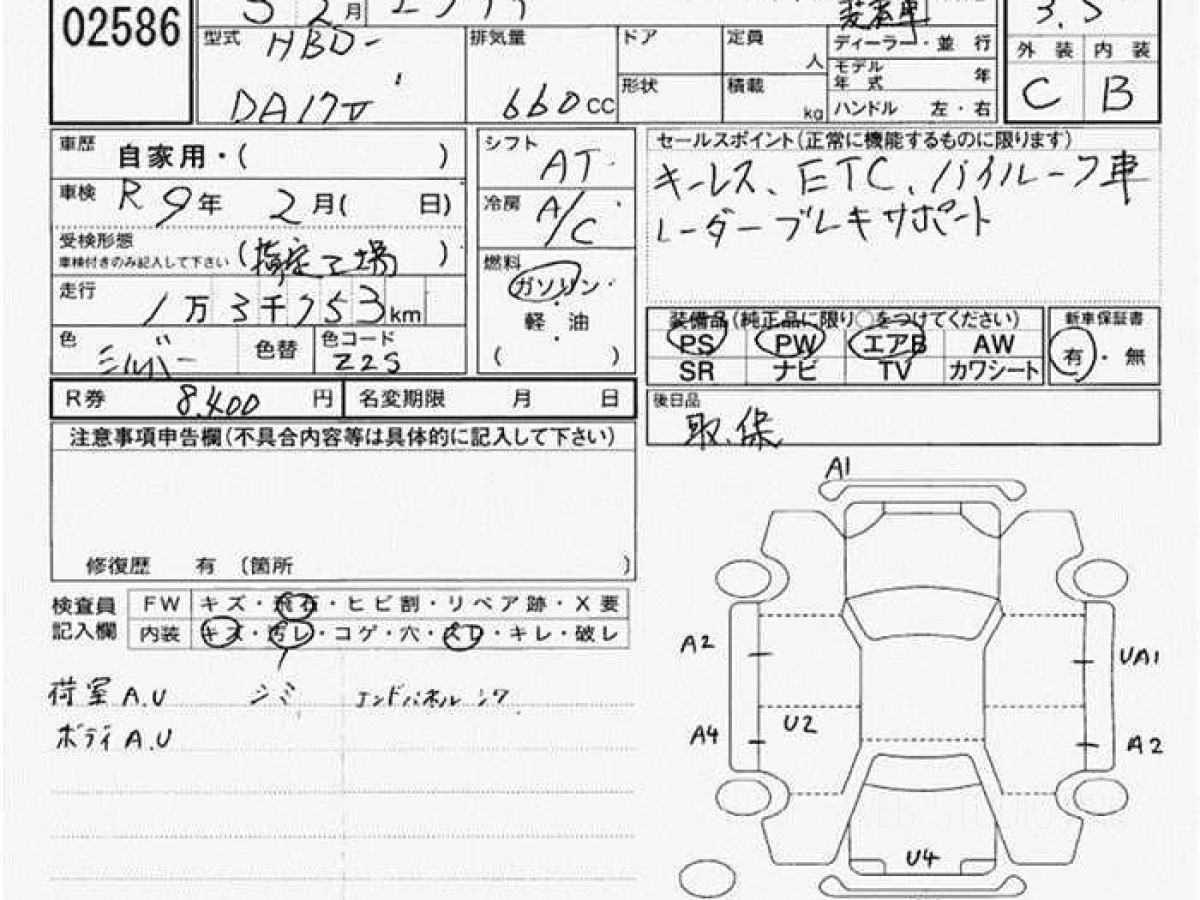 02586
5 2月 エブリイ
型式 HBD-
DA17V
排気量 660 CC
ドア
形状
定員 人
積載 kg
ディーラー・並 行
モデル年 式 年
ハンドル 左・右
3.5
外 装 内 装
C B
車歴 自家用・( )
車検 R 9年 2月( 日)
受検形態
車検付きのみ記入して下さい (指定工場)
走行 1万3千753km
色 シルバー 色替 色コード Z2S
シフト AT
冷房 A/C
燃料
ガソリン・
軽 油
( )
セールスポイント(正常に機能するものに限ります)
キーレス、ETC、ハイルーフ車
レーダーブレーキサポート
装備品(純正品に限り○をつけてください)
PS PW エアB AW
SR ナビ TV カワシート
新車保証書
有・無
R券 8,400 円 名変期限 月 日
後日品
取、保
注意事項申告欄(不具合内容等は具体的に記入して下さい)
修復歴 有 〔箇所 〕
検査員
記入欄
FW キズ・飛石・ヒビ割・リペア跡・X要
内装 キズ・汚レ・コゲ・穴・スレ・キレ・破レ
荷室 A.U シミ エンドパネル シワ
ボディ A.U
A1
A2 UA1
U2
A4 A2
U4